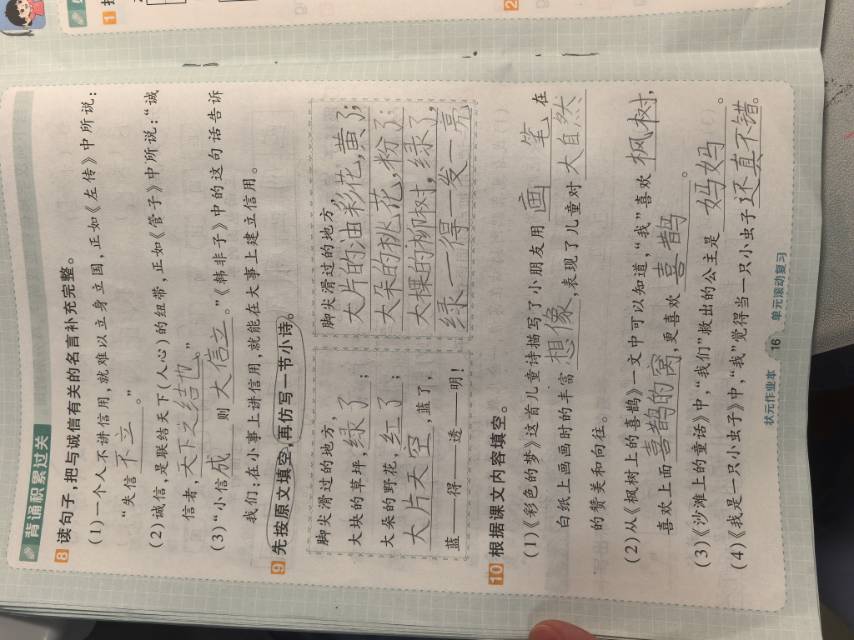 背诵积累过关
8 读句子,把与诚信有关的名言补充完整。
(1)一个人不讲信用,就难以立身立国,正如《左传》中所说:
“失信不立。”
(2)诚信,是联结天下(人心)的纽带,正如《管子》中所说:“诚
信者,天下之结也。”
(3)“小信成则大信立。”《韩非子》中的这句话告诉
我们:在小事上讲信用,就能在大事上建立信用。
9 先按原文填空,再仿写一节小诗。
脚尖滑过的地方,
大块的草坪,绿了;
大朵的野花,红了;
大片天空,蓝了,
蓝——得——透——明!
脚尖滑过的地方,
大片的油彩花,黄了;
大朵的桃花,粉了;
大棵的柳树,绿了,
绿一得一发一亮
10 根据课文内容填空。
(1)《彩色的梦》这首儿童诗描写了小朋友用画笔在
白纸上画画时的丰富想像,表现了儿童对大自然
的赞美和向往。
(2)从《枫树上的喜鹊》一文中可以知道,“我”喜欢枫树,
喜欢上面喜鹊的窝,更喜欢喜鹊。
(3)《沙滩上的童话》中,“我们”救出的公主是妈妈。
(4)《我是一只小虫子》中,“我”觉得当一只小虫子还真不错。
状元作业本 16 单元滚动复习